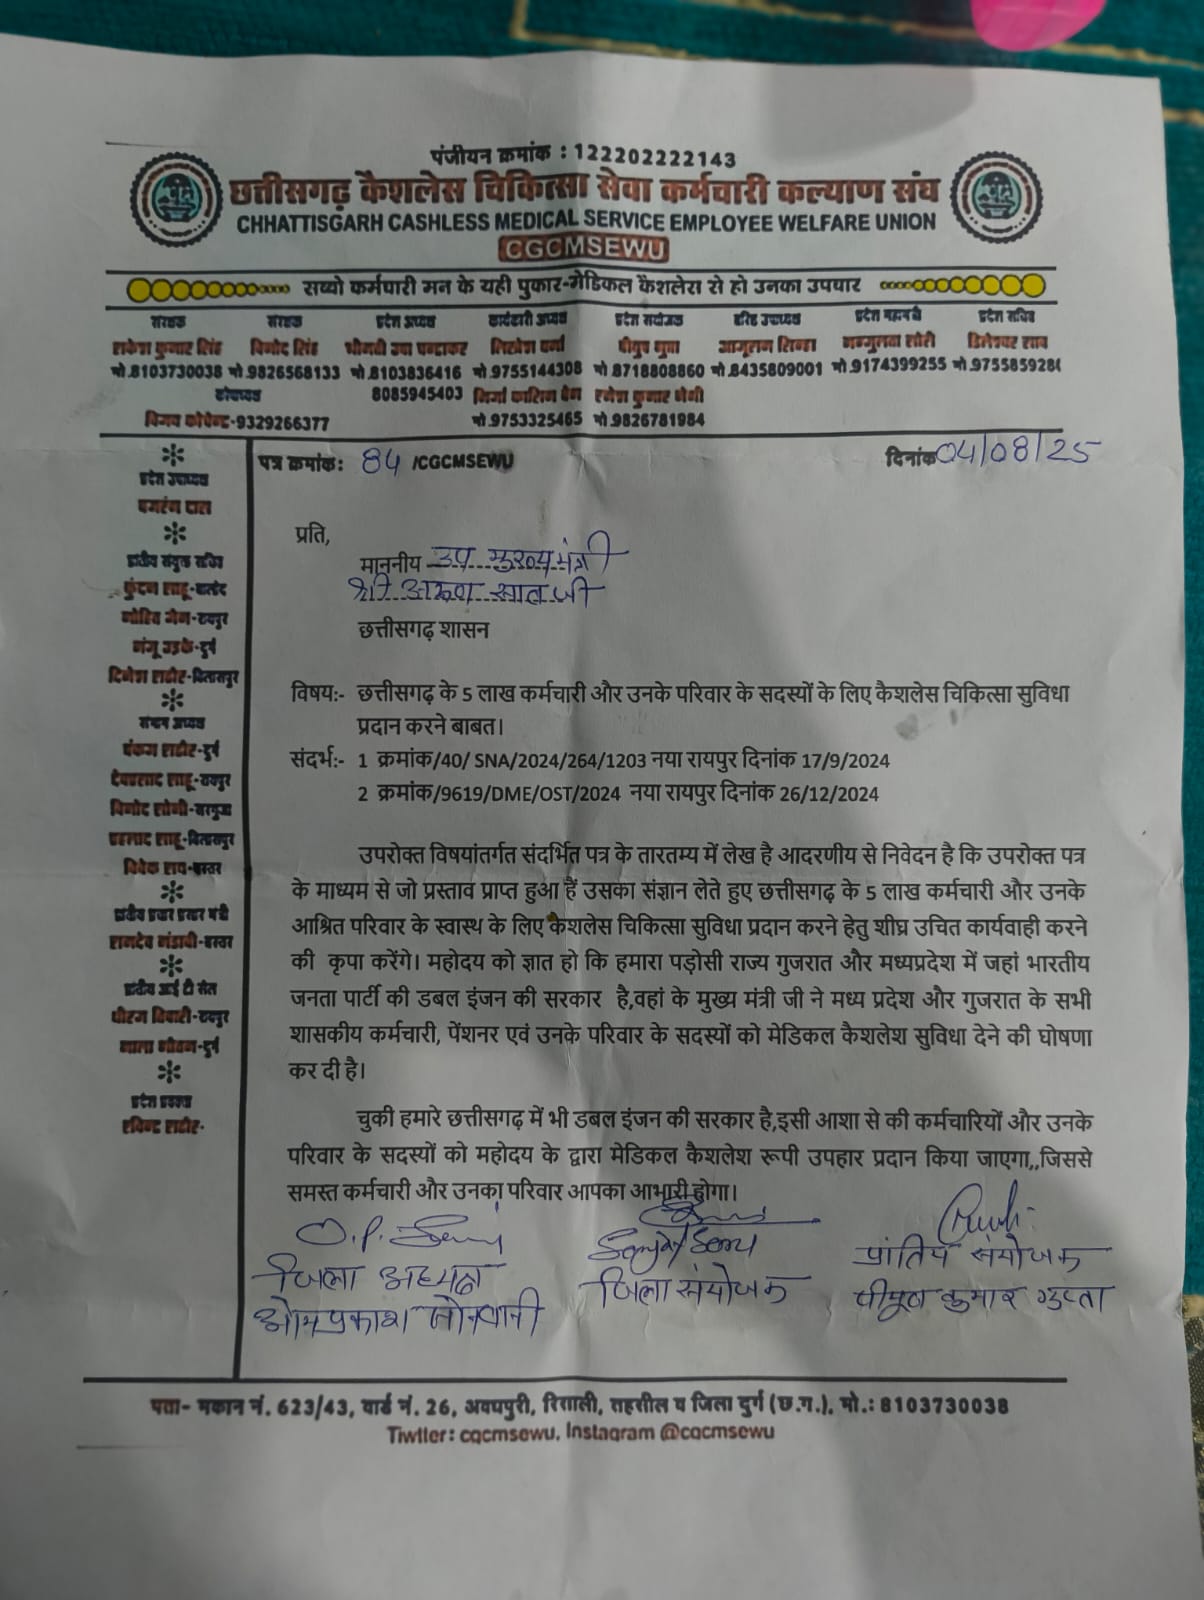 पंजीयन क्रमांक : 122202222143
छत्तीसगढ़ कैशलेस चिकित्सा सेवा कर्मचारी कल्याण संघ
CHHATTISGARH CASHLESS MEDICAL SERVICE EMPLOYEE WELFARE UNION
CGCMSEWU
सब्बो कर्मचारी मन के यही पुकार-मेडिकल कैशलेस से हो उनका उपचार
संरक्षक संरक्षक प्रदेश अध्यक्ष कार्यकारी अध्यक्ष प्रदेश संयोजक वरिष्ठ उपाध्यक्ष प्रदेश महामंत्री प्रदेश सचिव
राकेश कुमार सिंह विनोद सिंह श्रीमती उषा चन्द्राकर पीयूष गुप्ता
मो.8103730038 मो.9826568133 मो.8103836416 मो.9755144308 मो.8718808860 मो.8435809001 मो.9174399255 मो.975585928
कोषाध्यक्ष 8085945403 मिर्जा कासिम बेग
-9329266377 मो.9753325465 मो.9826781984
पत्र क्रमांक: 84 /CGCMSEWU दिनांक 04/08/25
प्रदेश उपाध्यक्ष
प्रति,
माननीय उप मुख्यमंत्री
श्री अरूण साव जी
छत्तीसगढ़ शासन
दिनेश राठौर-बिलासपुर
विषय:- छत्तीसगढ़ के 5 लाख कर्मचारी और उनके परिवार के सदस्यों के लिए कैशलेस चिकित्सा सुविधा
प्रदान करने बाबत।
संदर्भ:- 1 क्रमांक/40/ SNA/2024/264/1203 नया रायपुर दिनांक 17/9/2024
2 क्रमांक/9619/DME/OST/2024 नया रायपुर दिनांक 26/12/2024
पंकज राठौर-दुर्ग
देवप्रसाद साहू-रायपुर
विनोद सोनी-सरगुजा
प्रहलाद साहू-बिलासपुर
विवेक राय-बस्तर
उपरोक्त विषयांतर्गत संदर्भित पत्र के तारतम्य में लेख है आदरणीय से निवेदन है कि उपरोक्त पत्र
के माध्यम से जो प्रस्ताव प्राप्त हुआ हैं उसका संज्ञान लेते हुए छत्तीसगढ़ के 5 लाख कर्मचारी और उनके
आश्रित परिवार के स्वास्थ के लिए कैशलेस चिकित्सा सुविधा प्रदान करने हेतु शीघ्र उचित कार्यवाही करने
की कृपा करेंगे। महोदय को ज्ञात हो कि हमारा पड़ोसी राज्य गुजरात और मध्यप्रदेश में जहां भारतीय
जनता पार्टी की डबल इंजन की सरकार है,वहां के मुख्य मंत्री जी ने मध्य प्रदेश और गुजरात के सभी
शासकीय कर्मचारी, पेंशनर एवं उनके परिवार के सदस्यों को मेडिकल कैशलेश सुविधा देने की घोषणा
कर दी है।
चुकी हमारे छत्तीसगढ़ में भी डबल इंजन की सरकार है,इसी आशा से की कर्मचारियों और उनके
परिवार के सदस्यों को महोदय के द्वारा मेडिकल कैशलेश रूपी उपहार प्रदान किया जाएगा,,जिससे
समस्त कर्मचारी और उनका परिवार आपका आभारी होगा।
जिला अध्यक्ष जिला संयोजक प्रांतिय संयोजक
ओमप्रकाश सोनवानी पीयूष कुमार गुप्ता
पता- मकान नं. 623/43, वार्ड नं. 26, अवधपुरी, रिसाली, तहसील व जिला दुर्ग (छ.ग.), मो.: 8103730038
Tiwtter: cgcmsewu, Instagram @cgcmsewu